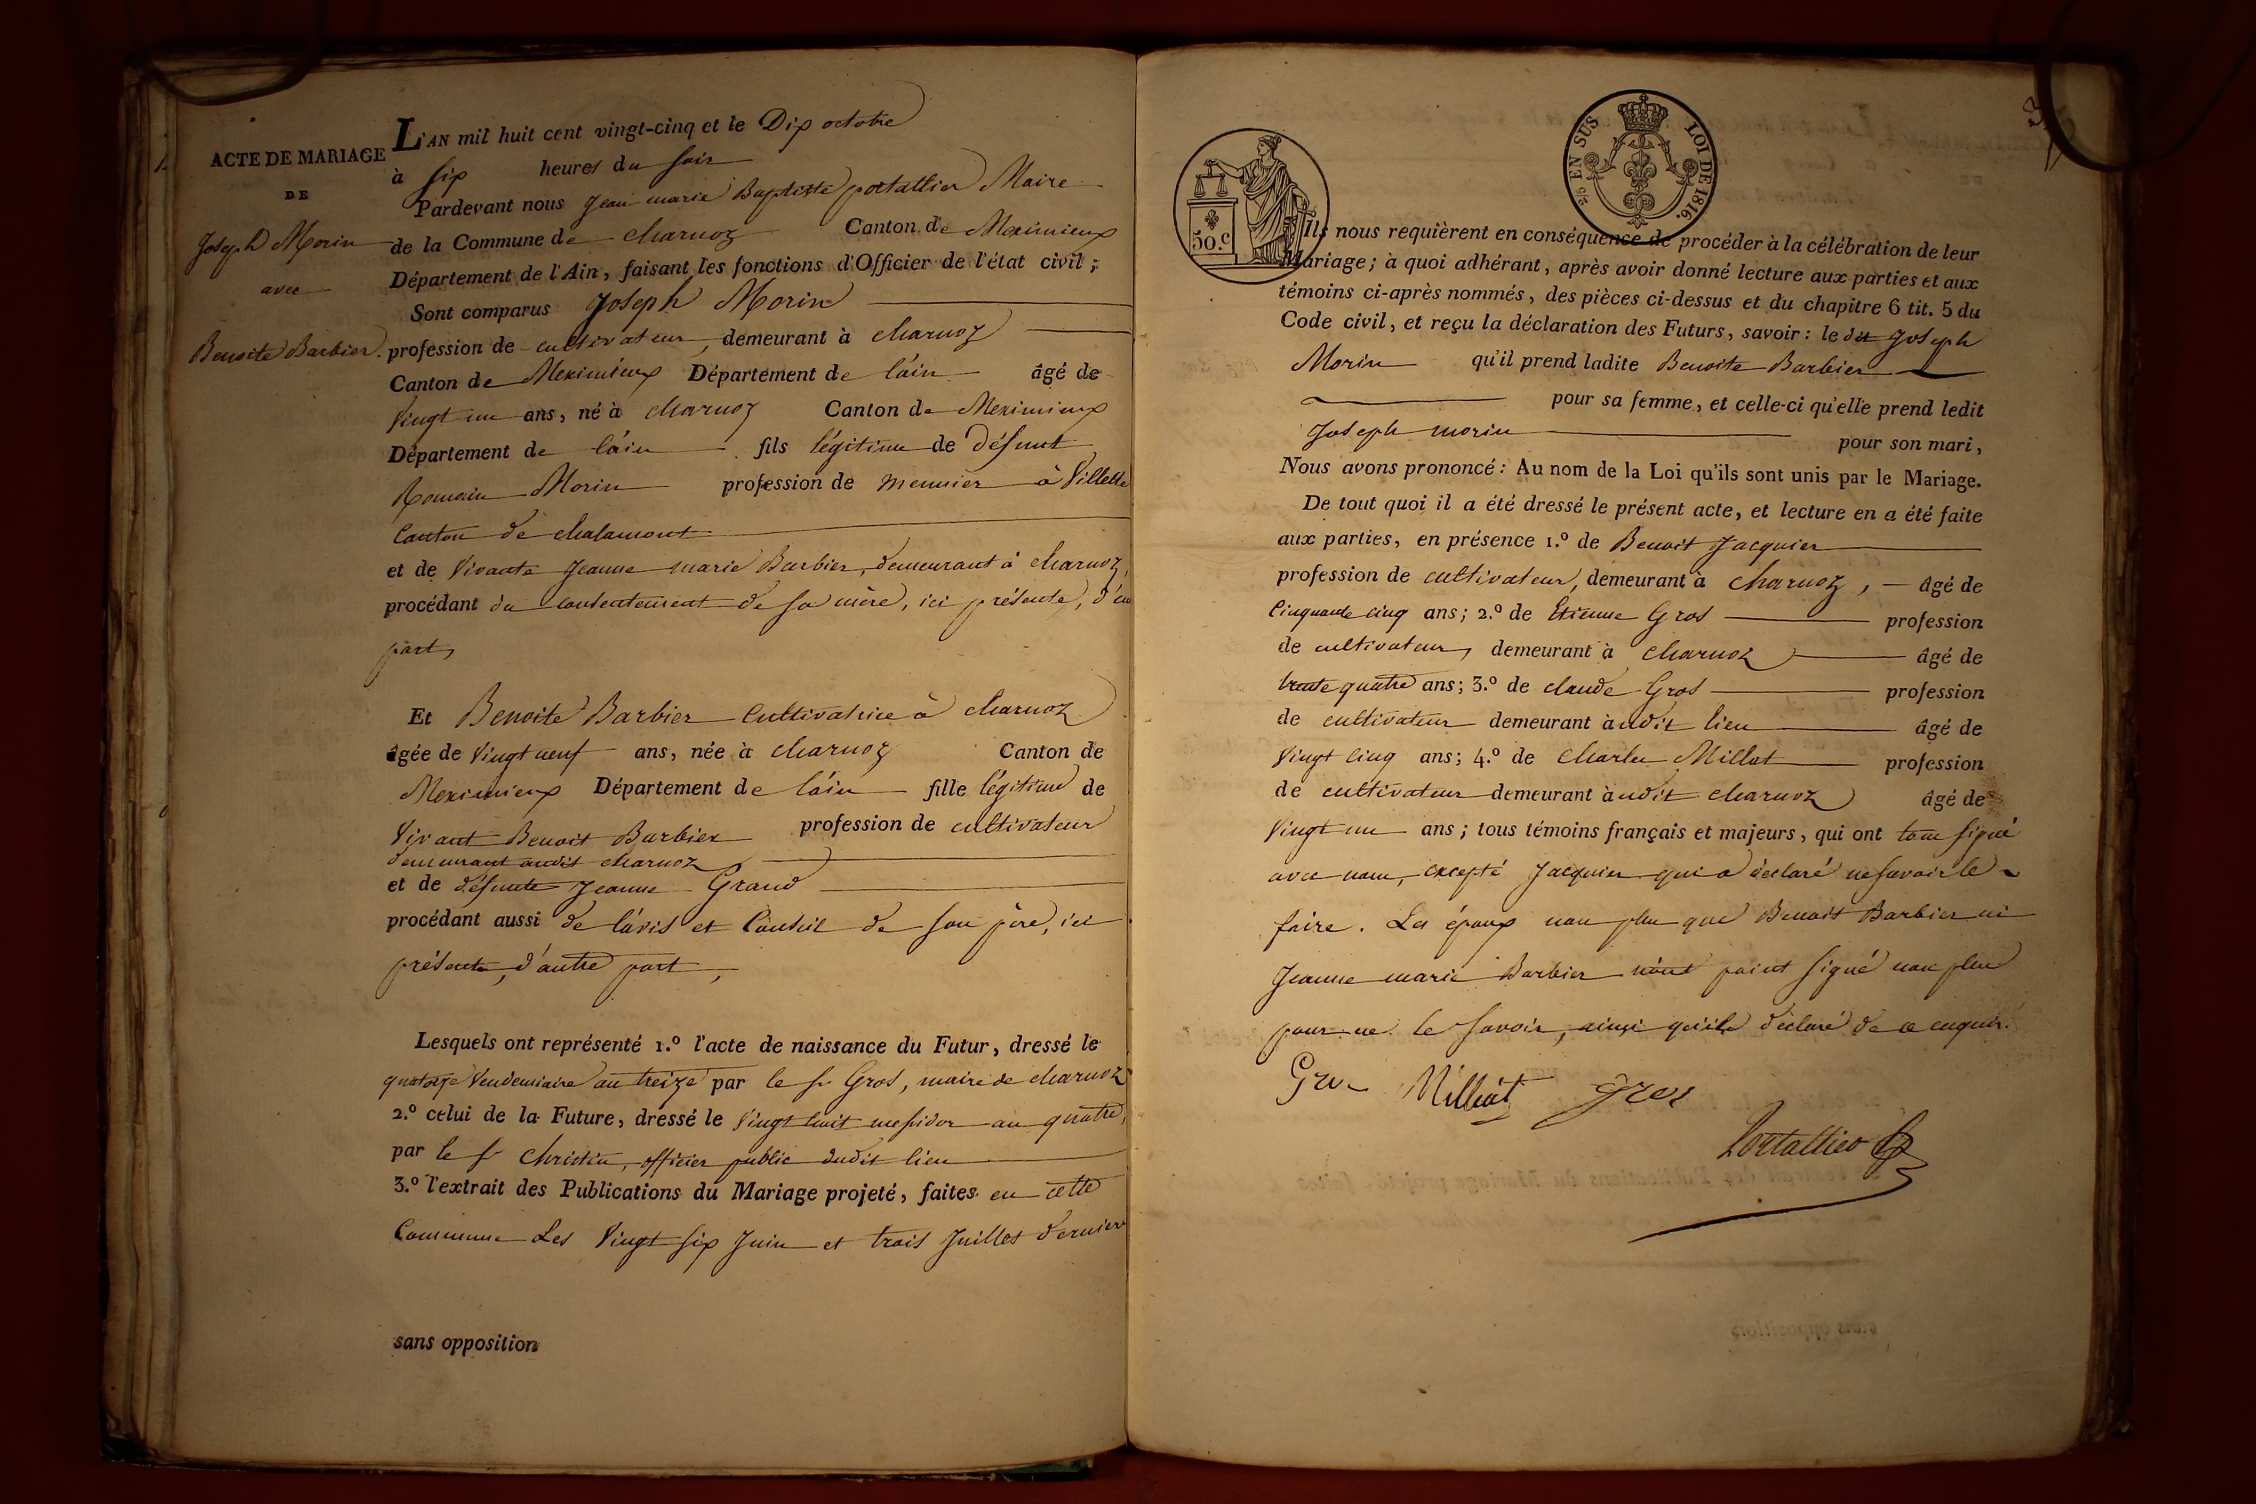 ACTE DE MARIAGE
DE
Joseph Morin
avec
Benoite Barbier.
L'AN mil huit cent vingt-cinq et le Dix octobre
à six heures du soir
Pardevant nous Jean marie Baptiste portallier Maire
de la Commune de charnoz Canton de Meximieux
Département de l'Ain, faisant les fonctions d'Officier de l'état civil;
Sont comparus Joseph Morin
profession de cultivateur, demeurant à charnoz
Canton de Meximieux Département de l'ain âgé de
Vingt un ans, né à charnoz Canton de Meximieux
Département de l'ain fils légitime de défunt
Romain Morin profession de meunier à Villette
Canton de chalamont
et de Vivante Jeanne marie Barbier, demeurant à charnoz,
procédant du consentement de sa mère, ici présente, d'une
part,
Et Benoite Barbier Cultivatrice à charnoz
âgée de Vingt neuf ans, née à charnoz Canton de
Meximieux Département de l'ain fille légitime de
Vivant Benoit Barbier profession de cultivateur
demeurant audit charnoz
et de défunte Jeanne Grand
procédant aussi de l'avis et Conseil de son père, ici
présente, d'autre part,
Lesquels ont représenté 1.º l'acte de naissance du Futur, dressé le
quatorze Vendemiaire an treize par le sr Gros, maire de charnoz
2.º celui de la Future, dressé le Vingt huit messidor an quatre,
par le sr Christin, officier public dudit lieu
3.º l'extrait des Publications du Mariage projeté, faites en cette
Commune Les Vingt six Juin et trois Juillet derniers
sans opposition
50.c
2/10 EN SUS
LOI DE 1816.
Ils nous requièrent en conséquence de procéder à la célébration de leur
Mariage; à quoi adhérant, après avoir donné lecture aux parties et aux
témoins ci-après nommés, des pièces ci-dessus et du chapitre 6 tit. 5 du
Code civil, et reçu la déclaration des Futurs, savoir: le dit Joseph
Morin qu'il prend ladite Benoite Barbier
pour sa femme, et celle-ci qu'elle prend ledit
Joseph morin pour son mari,
Nous avons prononcé: Au nom de la Loi qu'ils sont unis par le Mariage.
De tout quoi il a été dressé le présent acte, et lecture en a été faite
aux parties, en présence 1.º de Benoit Jacquier
profession de cultivateur, demeurant à charnoz, âgé de
Cinquante cinq ans; 2.º de Etienne Gros profession
de cultivateur, demeurant à charnoz âgé de
trente quatre ans; 3.º de claude Gros profession
de cultivateur demeurant audit lieu âgé de
Vingt cinq ans; 4.º de Charles Millat profession
de cultivateur demeurant audit charnoz âgé de
Vingt un ans; tous témoins français et majeurs, qui ont tous signé
avec nous, excepté Jacquier qui a déclaré ne savoir le
faire. Les époux non plus que Benoit Barbier ni
Jeanne marie Barbier n'ont point signé non plus
pour ne le savoir, ainsi qu'ils déclaré de ce enquis.
Gros Milliat gros
Portallier